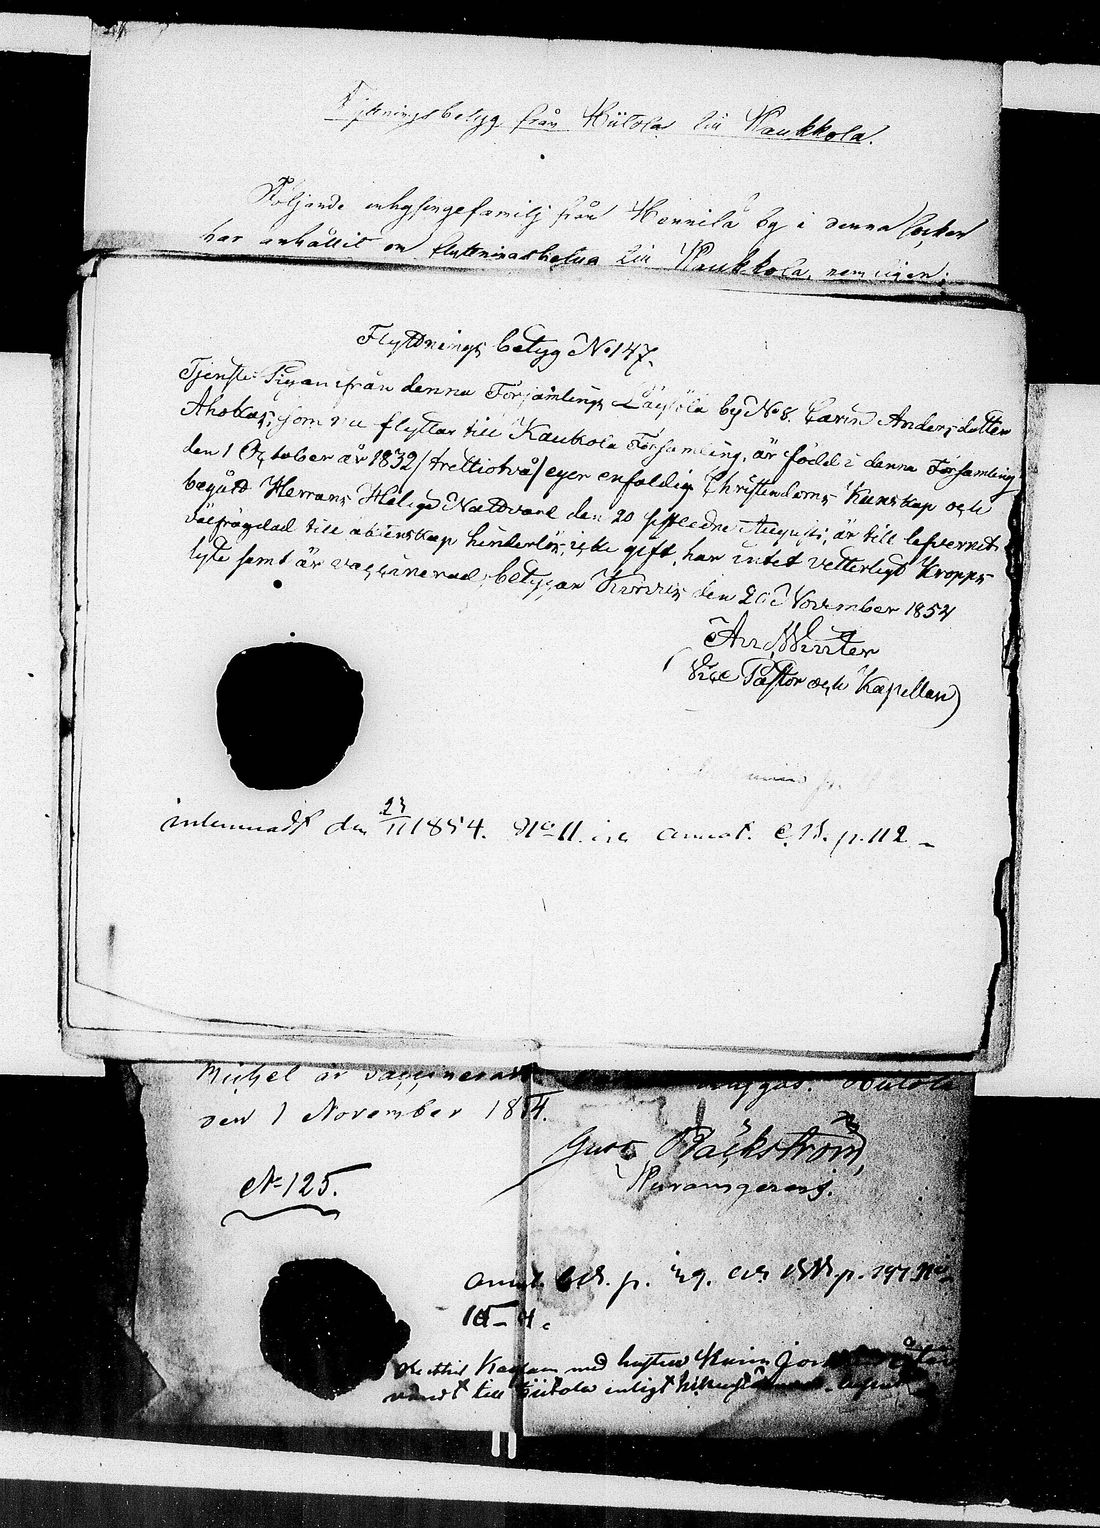 Flyttningsbetyg från Hiitola till Kaukkola.
Följande inhysingefamilj från Hennilä by i denna Socken
har anhållit om flyttningsbetyg till Kaukkola, nemligen:
Flyttnings betyg No 147.
Tjenste Pigan ifrån denna Församlings by No 8. Carin Anders dotter
Ahokas, som nu flyttar till Kaukola Församling, är född i denna Församling
den 1 October år 1832 /trettiotvå/ eger enfaldig Christendoms Kunskap och
begått Herrans Heliga Nattvard den 20 sistledne Augusti, är till lefvernet
till äktenskap hinderlös, icke gift, har intet vetterligt Kropps-
lyte samt är vaccinerad; betygar Kurvis den 20 November 1854
And. Winter
(Vice Pastor och Kapellan)
inlemnadt den 23/11 1854. No 11. in annot. C.B. p. 112 -
Michel är vaccinerad Hiitola
den 1 November 1854.
Gust. Bäckström
No 125.
Annot. C.B. p.
med hustru
till Hiitola enligt